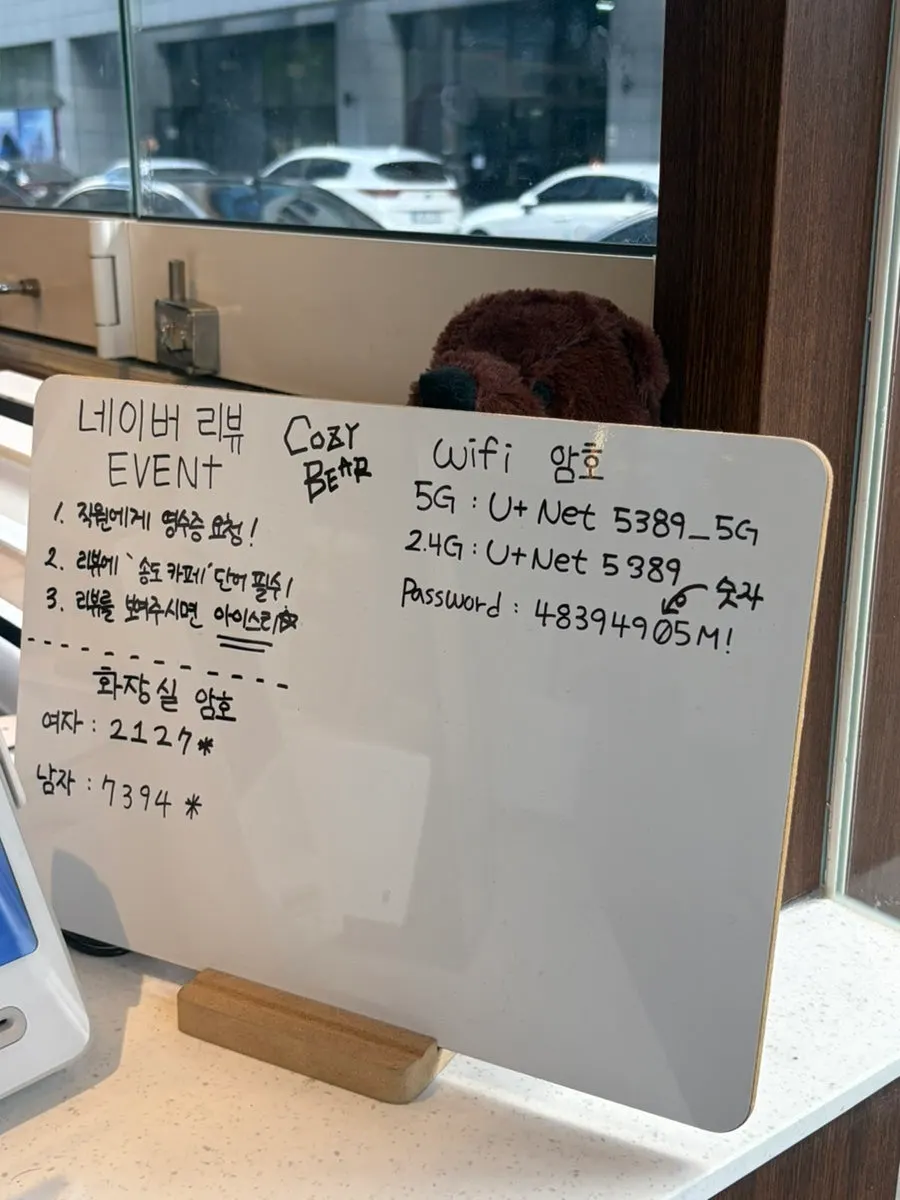 네이버 리뷰
EVENT
1. 직원에게 영수증 요청!
2. 리뷰에 `송도 카페´ 단어 필수!
3. 리뷰를 보여주시면
화장실 암호
여자 : 2127*
남자 : 7394 *
COZY
BEAR
Wifi 암호
5G : U+ Net 5389_5G
2.4G : U+Net 5389
숫자
Password : 48394905M!